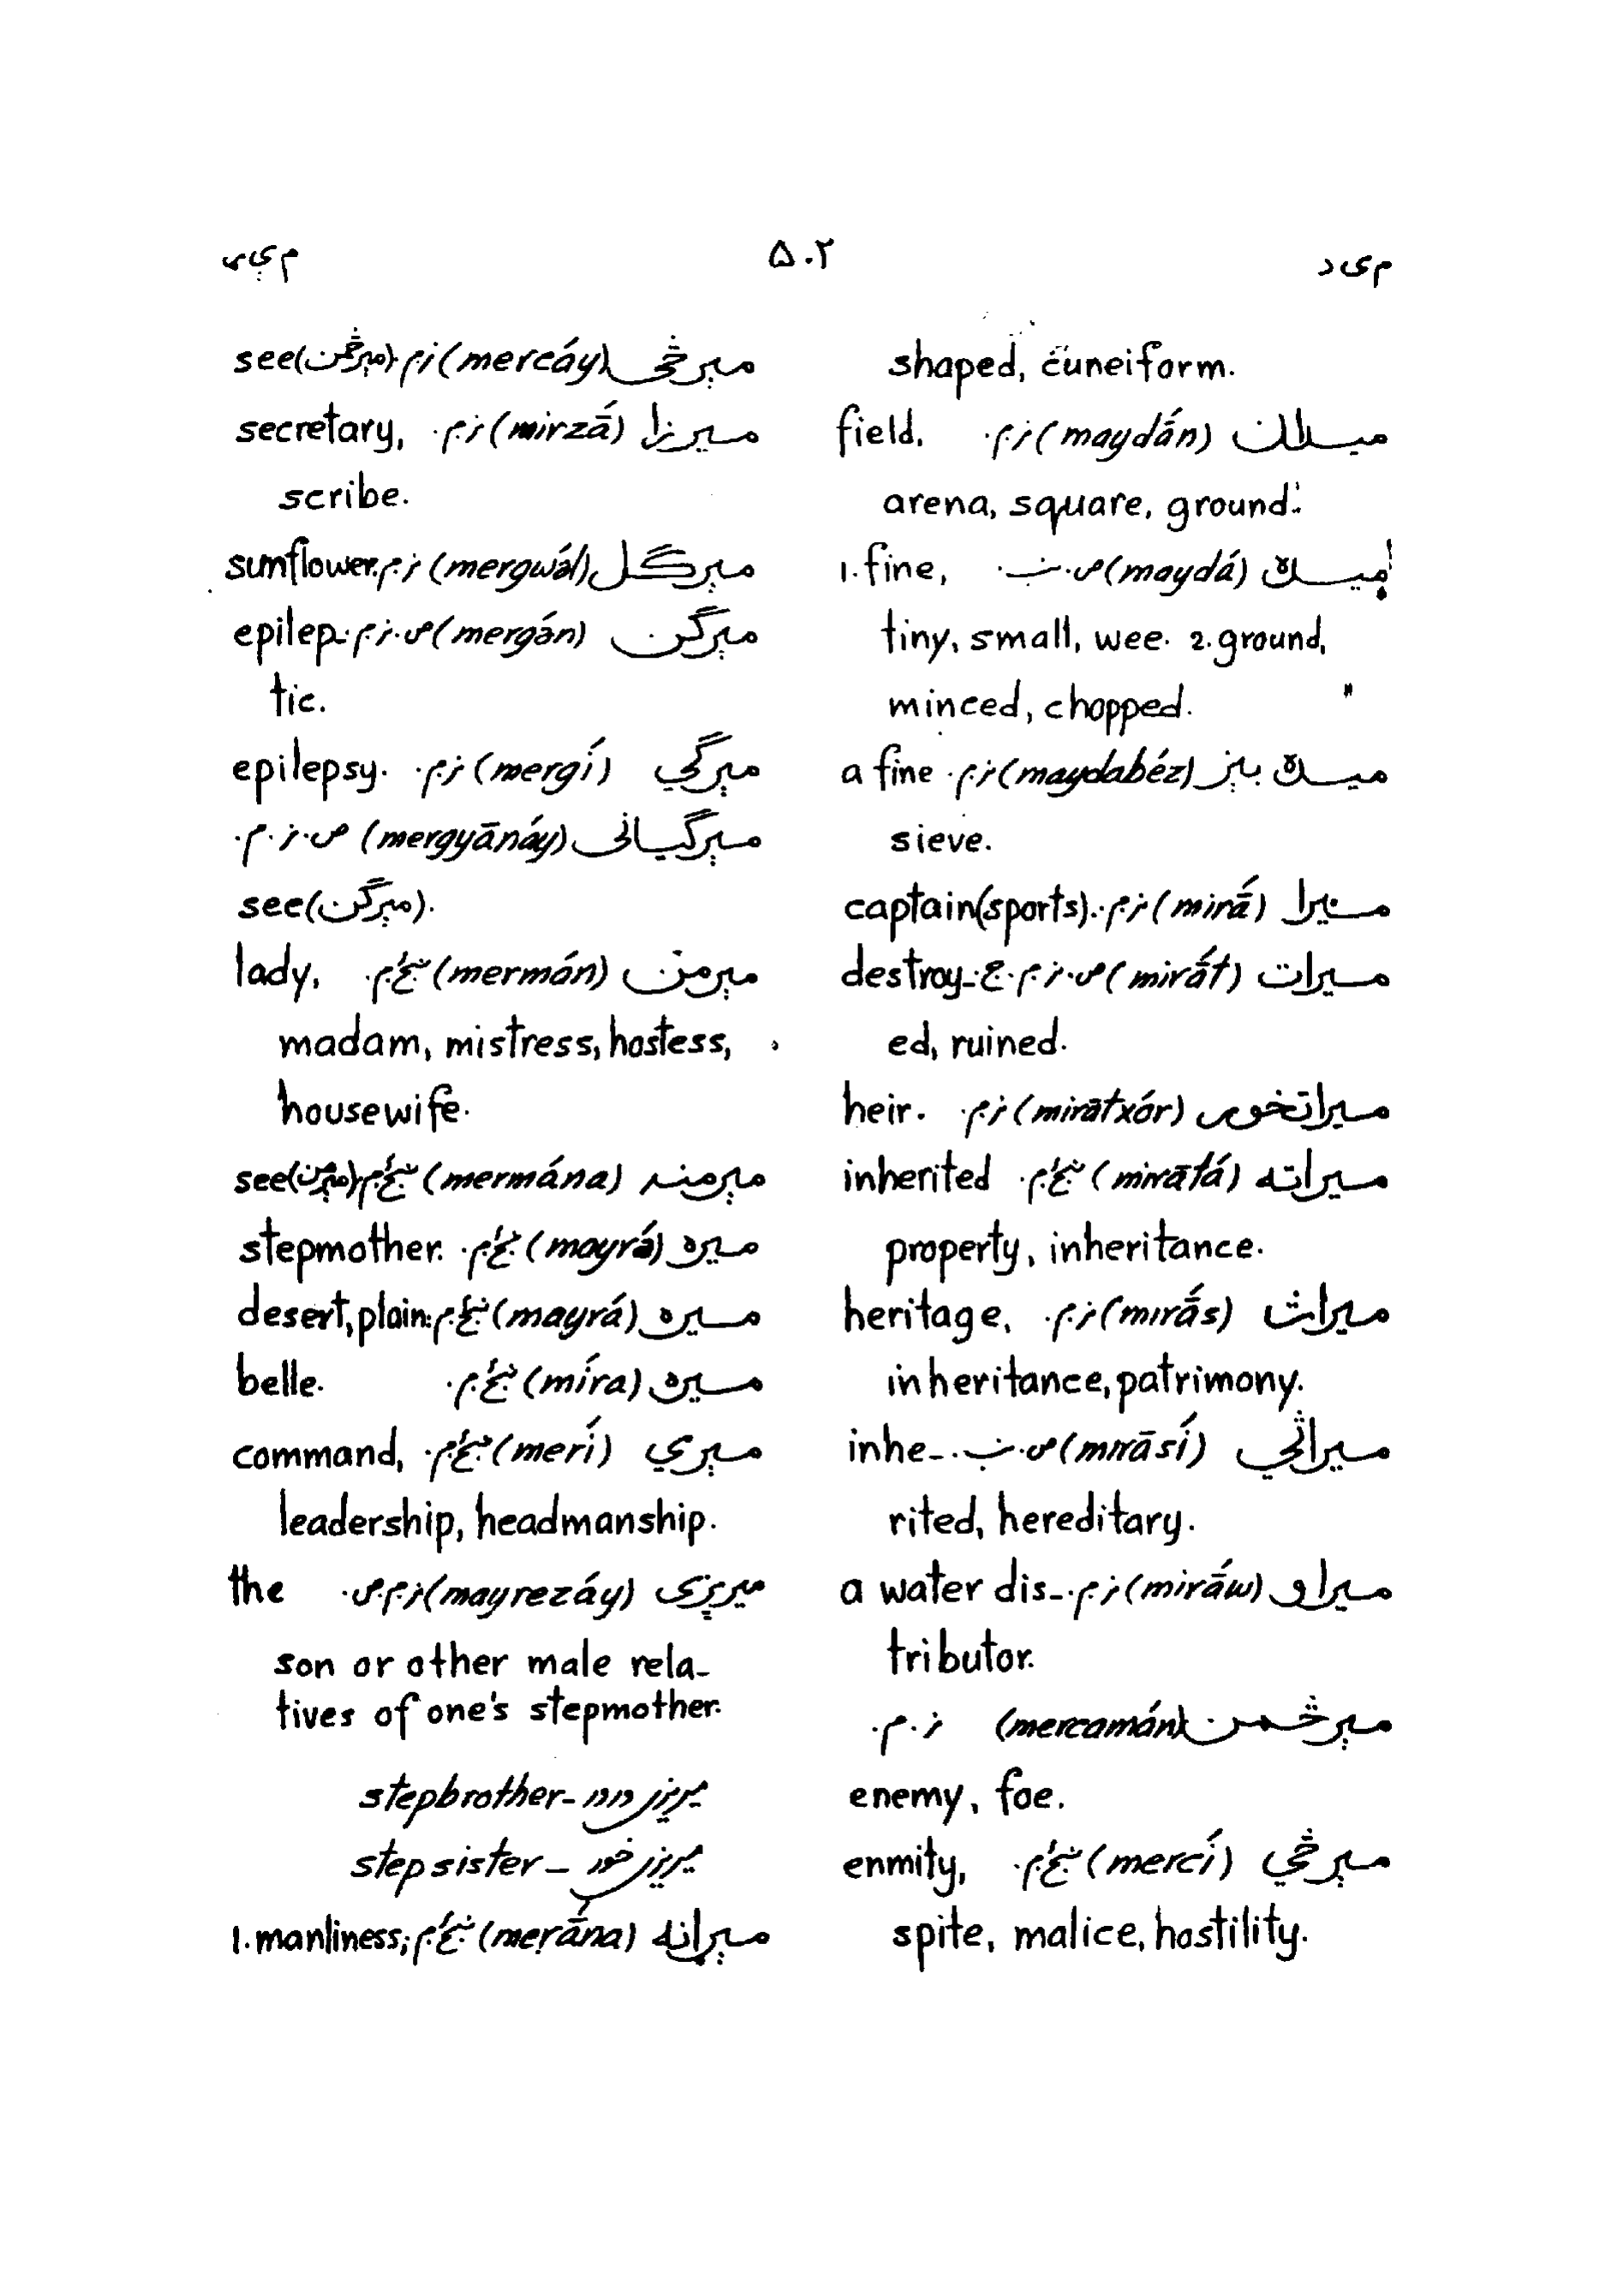 م ی د
۵۰۲
م ې ر
shaped, cuneiform.
میدان (maydán) ز.م. field,
arena, square, ground.
میده (maydá) ص. 1. fine,
tiny, small, wee. 2. ground,
minced, chopped.
میده بېز (maydabéz) ز.م. a fine
sieve.
میرا (mirā́) ز.م. captain(sports).
میرات (mirā́t) ص.ز.م.ج. destroy-
ed, ruined.
میراتخور (mirātxór) ز.م. heir.
میراته (mirātá) ښځ.م. inherited
property, inheritance.
میراث (mirā́s) ز.م. heritage,
inheritance, patrimony.
میراثي (mirāsí) ص. inhe-
rited, hereditary.
میراو (mirāw) ز.م. a water dis-
tributor.
مېرڅمن (mercamán) ز.م.
enemy, foe.
مېرڅي (mercí) ښځ.م. enmity,
spite, malice, hostility.
مېرڅی (mercáy) ز.م. see(مېرڅمن)
میرزا (mirzā́) ز.م. secretary,
scribe.
مېرګل (mergwál) ز.م. sunflower.
مېرګن (mergán) ص.ز.م. epilep-
tic.
مېرګي (mergí) ز.م. epilepsy.
مېرګیانی (mergyānáy) ص.ز.م.
see(مېرګن).
مېرمن (mermán) ښځ.م. lady,
madam, mistress, hostess,
housewife.
مېرمنه (mermána) ښځ.م. see(مېرمن)
میره (mayrá) ښځ.م. stepmother.
میره (mayrá) ښځ.م. desert, plain.
میره (míra) ښځ.م. belle.
مېري (merí) ښځ.م. command,
leadership, headmanship.
میرېزی (mayrezáy) ز.م.ص. the
son or other male rela-
tives of one's stepmother.
stepbrother-
stepsister-
مېړانه (meṛā́na) ښځ.م. 1. manliness;